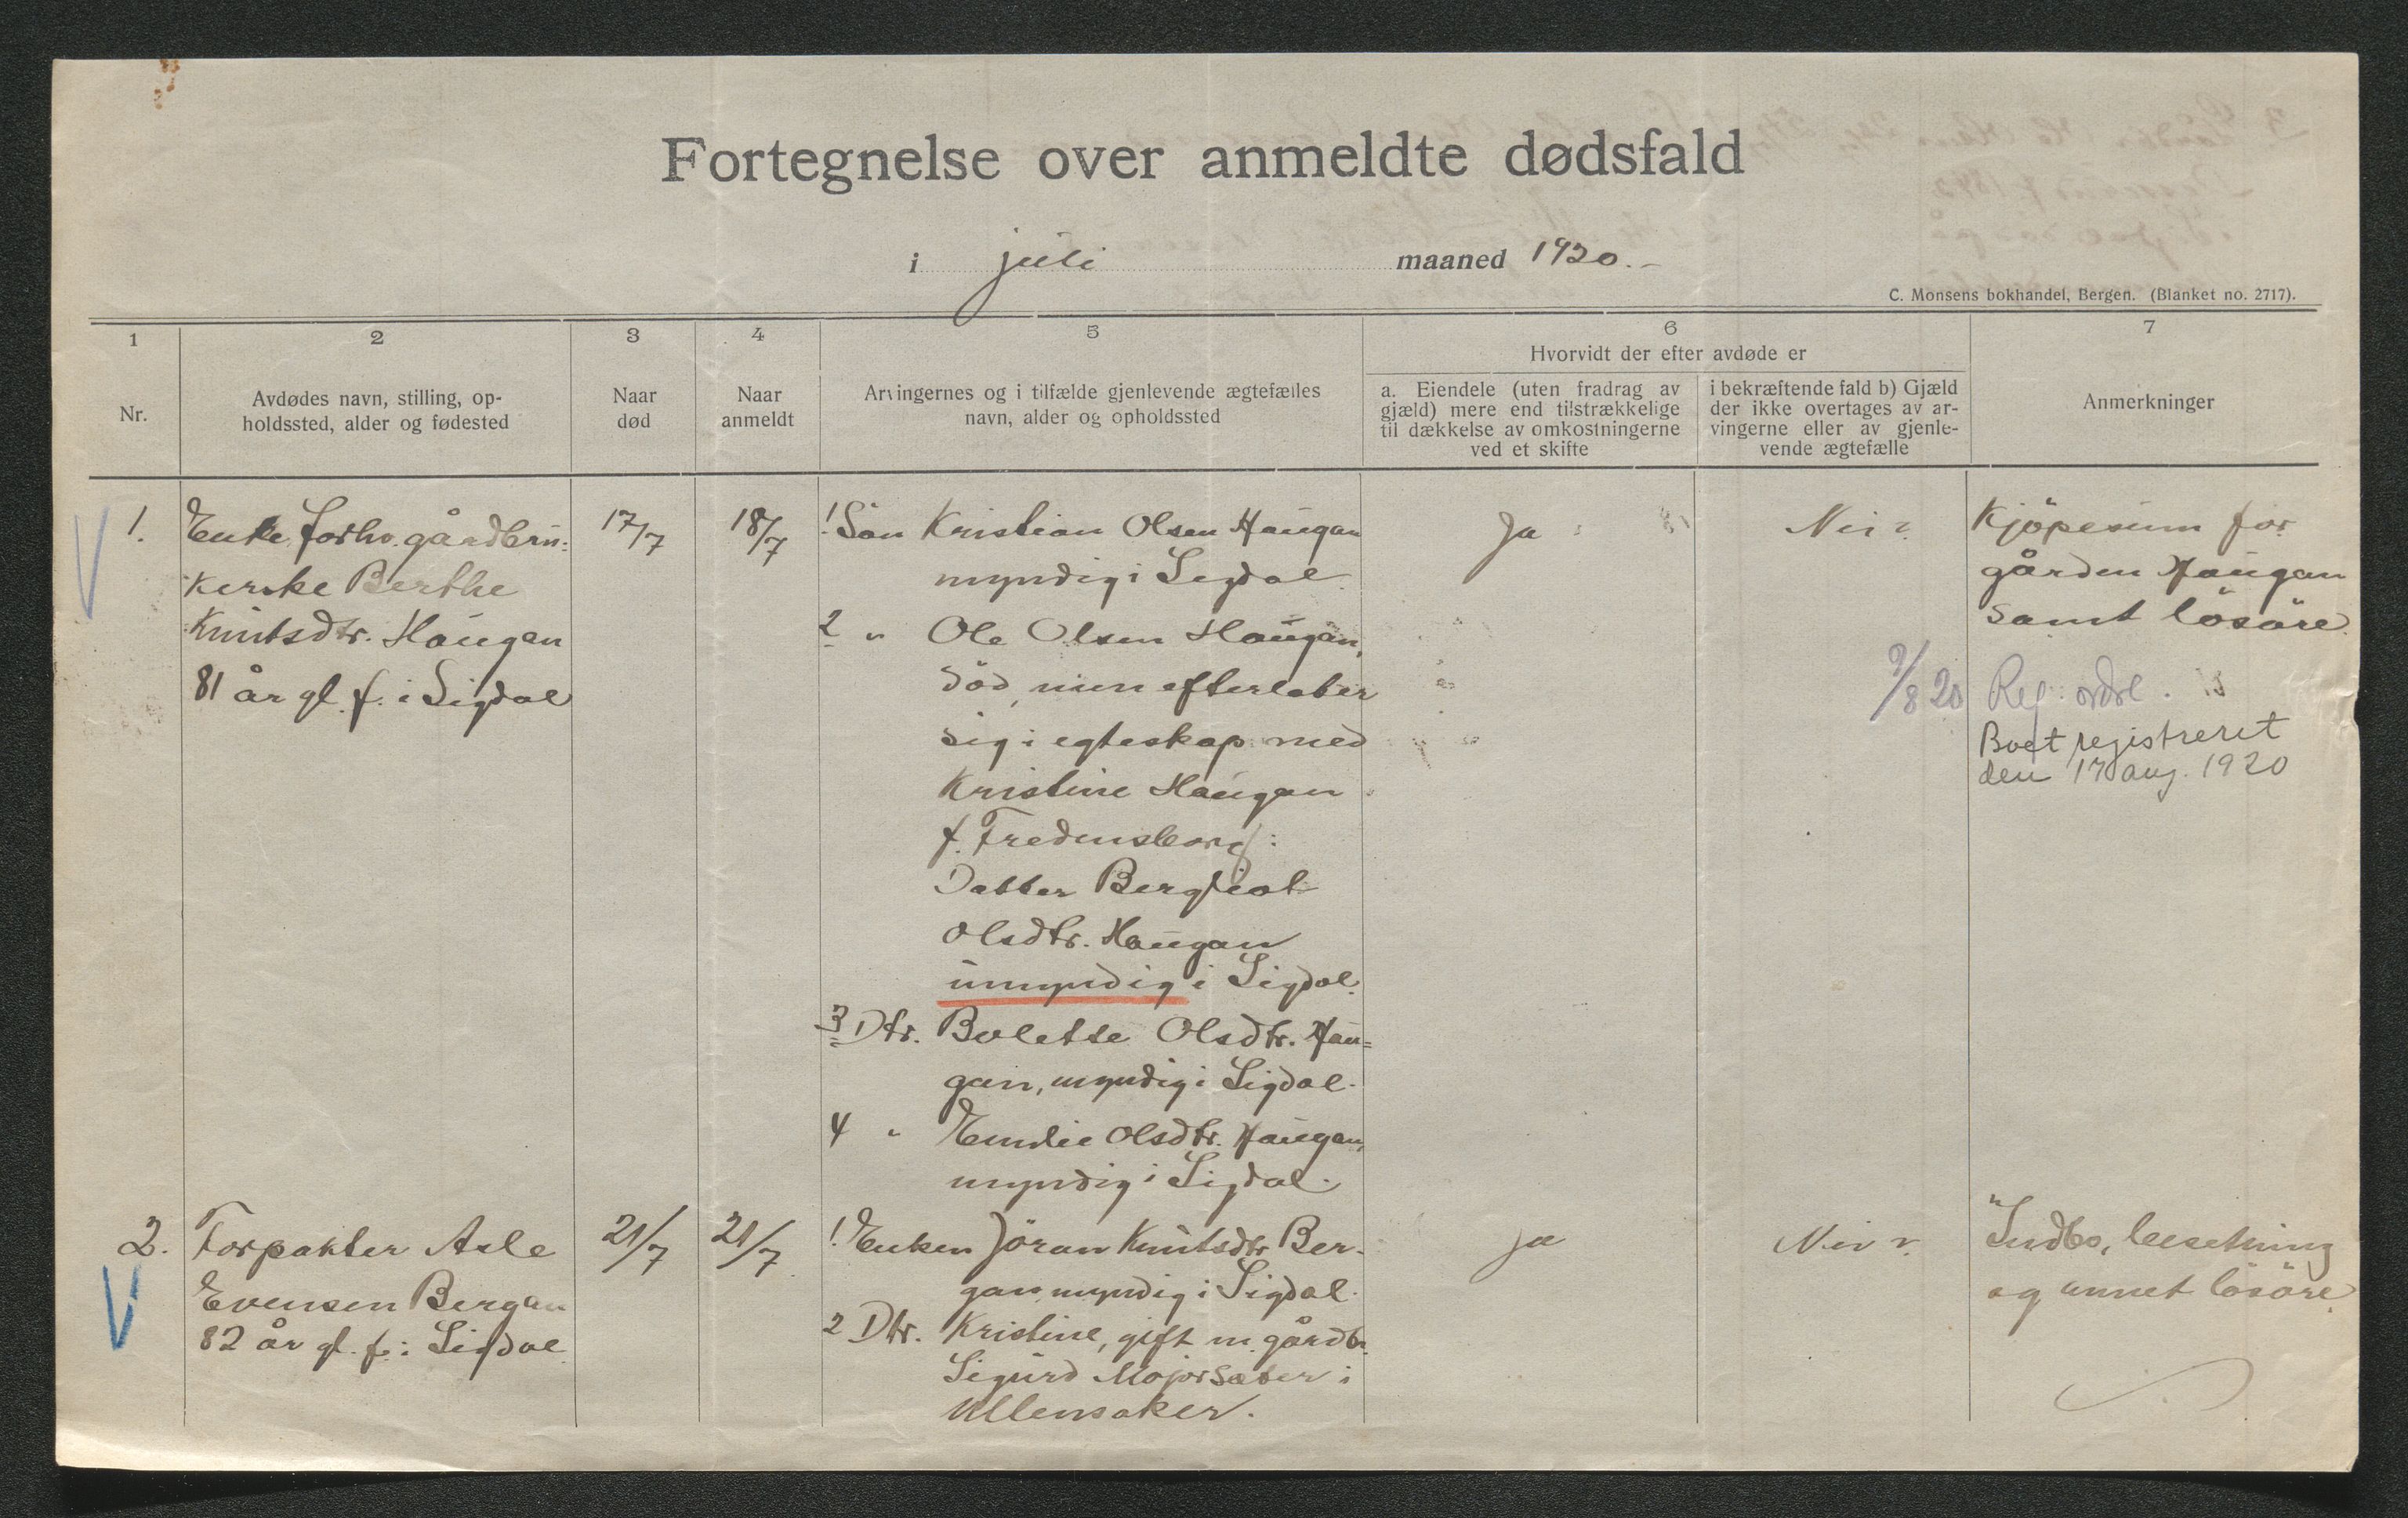 Fortegnelse over anmeldte dødsfald
i juli maaned 1920.
C. Monsens bokhandel, Bergen. (Blanket no. 2717).
1
Nr.
2
Avdødes navn, stilling, op-
holdssted, alder og fødested
3
Naar
død
4
Naar
anmeldt
5
Arvingernes og i tilfælde gjenlevende ægtefælles
navn, alder og opholdssted
6
Hvorvidt der efter avdøde er
a. Eiendele (uten fradrag av
gjæld) mere end tilstrækkelige
til dækkelse av omkostningerne
ved et skifte
i bekræftende fald b) Gjæld
der ikke overtages av ar-
vingerne eller av gjenle-
vende ægtefælle
7
Anmerkninger
1.
Enke, forhv. gårdbru-
kerske Berthe
Knutsdtr. Haugan
81 år gl. f. i Sigdal
17/7
18/7
1. Sön Kristian Olsen Haugan
myndig i Sigdal
2 " Ole Olsen Haugan,
död, men efterlater
sig i egteskap med
Kristine Haugan
f. Fredensborg:
Datter Bergliot
Olsdtr. Haugan
umyndig i Sigdal.
3 Dtr. Bolette Olsdtr. Hau=
gan, myndig i Sigdal.
4 " Emilie Olsdtr. Haugan,
myndig i Sigdal.
Ja
Nei
Kjöpesum for
gården Haugan
samt lösöre.
9/8 20 Reg. ordre.
Boet registreret
den 17 aug. 1920
2.
Forpakter Asle
Evensen Bergan
82 år gl. f. i Sigdal
21/7
21/7
1. Enken Jöran Knutsdtr. Ber-
gan myndig i Sigdal.
2 Dtr. Kristine, gift m. gårdbr.
Sigurd Majorsæter i
Ullensaker.
Ja
Nei
Indbo, besetning
og annet lösöre.